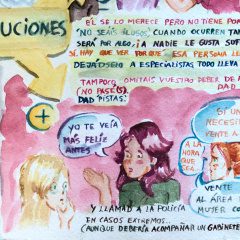 UCIONES
EL SE LO MERECE PERO NO TIENE POR
"NO SEÁIS ILUSOS, CUANDO OCURREN TAN
SERÁ POR ALGO, ¡A NADIE LE GUSTA SUF
SÍ, HAY QUE VER POR QUÉ ESA PERSONA L
DEJÁDSELO A ESPECIALISTAS TODO LLEVA
TAMPOCO OMITÁIS VUESTRO DEBER DE
(NO PASÉIS).
DAD PISTAS.
DAD
YO TE VEÍA
MÁS FELIZ
ANTES
SI UN
NECESIT
VENTE A
A LA
HORA
QUE
SEA
VENTE
AL ÁREA
MUJER CO
Y LLAMAD A LA POLICÍA
EN CASOS EXTREMOS...
(AUNQUE DEBERÍA ACOMPAÑAR UN GABINETE